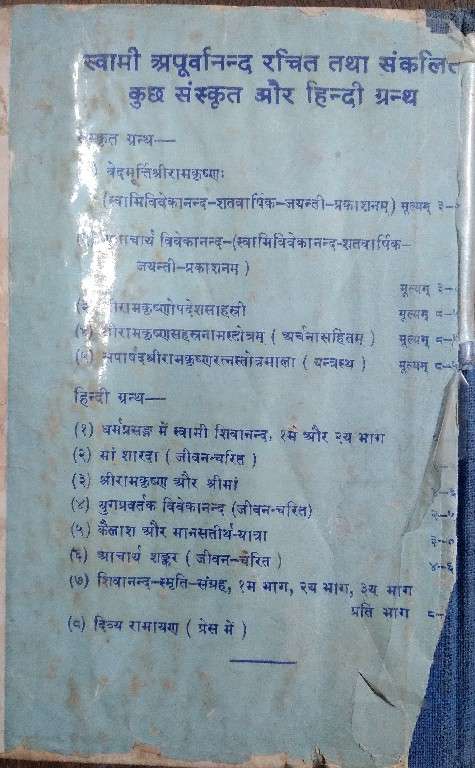 स्वामी अपूर्वानन्द रचित तथा संकलित
कुछ संस्कृत और हिन्दी ग्रन्थ
संस्कृत ग्रन्थ—
वेदमूर्त्तिश्रीरामकृष्णः
(स्वामिविवेकानन्द-शतवार्षिक-जयन्ती-प्रकाशनम्) मूल्यम् ३-
आचार्य विवेकानन्द-(स्वामिविवेकानन्द-शतवार्षिक-
जयन्ती-प्रकाशनम्)
मूल्यम् ३-
श्रीरामकृष्णोपदेशसाहस्त्री मूल्यम् ८-
(४) श्रीरामकृष्णसहस्त्रनामस्तोत्रम् ( अर्चनासहितम् ) मूल्यम्
(५) सपार्षदश्रीरामकृष्णरत्नस्तोत्रमाला ( यन्त्रस्थ ) मूल्यम् ८-
हिन्दी ग्रन्थ—
(१) धर्मप्रसङ्ग में स्वामी शिवानन्द, १म और २य भाग
(२) मां शारदा ( जीवन-चरित )
(३) श्रीरामकृष्ण और श्रीमां
(४) युगप्रवर्तक विवेकानन्द (जीवन-चरित)
(५) कैलाश और मानसतीर्थ-यात्रा
(६) आचार्य शङ्कर ( जीवन-चरित )
(७) शिवानन्द-स्मृति-संग्रह, १म भाग, २य भाग, ३य भाग
प्रति भाग ८-
(८) दिव्य रामायण ( प्रेस में )